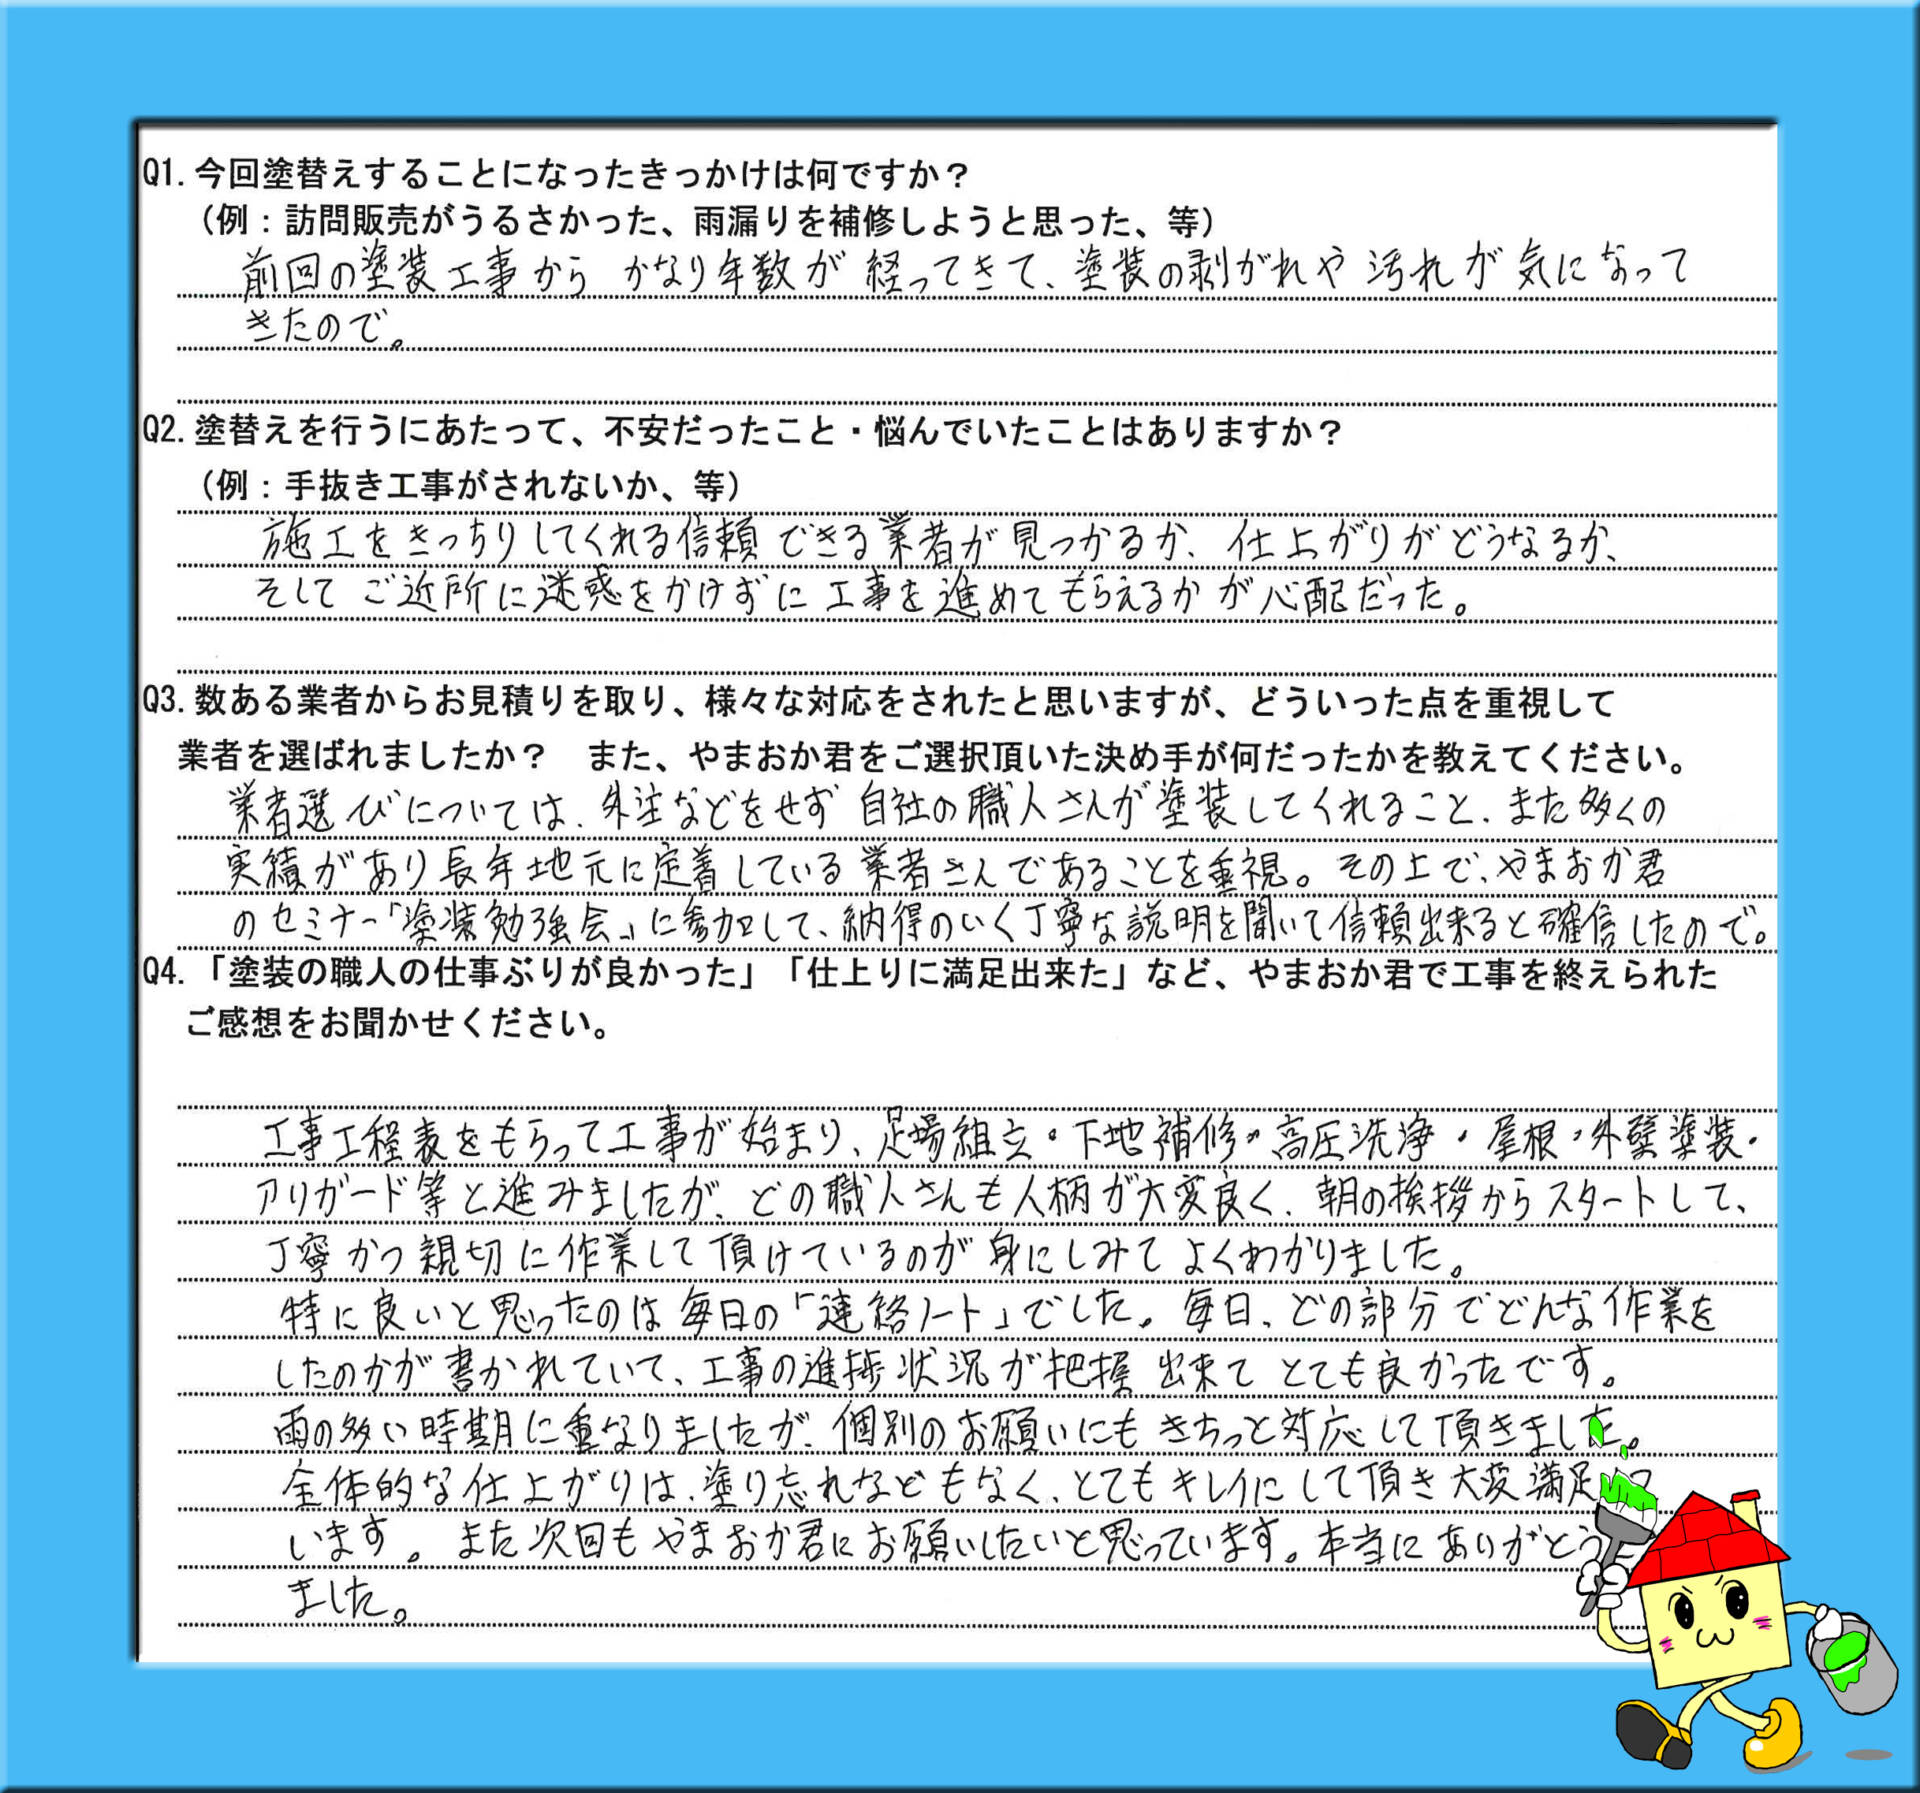 Q1. 今回塗替えすることになったきっかけは何ですか？
（例：訪問販売がうるさかった、雨漏りを補修しようと思った、等）
前回の塗装工事から かなり年数が経ってきて、塗装の剥がれや汚れが気になって
きたので。
Q2. 塗替えを行うにあたって、不安だったこと・悩んでいたことはありますか？
（例：手抜き工事がされないか、等）
施工をきっちりしてくれる信頼できる業者が見つかるか、仕上がりがどうなるか、
そしてご近所に迷惑をかけずに工事を進めてもらえるかが心配だった。
Q3. 数ある業者からお見積りを取り、様々な対応をされたと思いますが、どういった点を重視して
業者を選ばれましたか？　また、やまおか君をご選択頂いた決め手が何だったかを教えてください。
業者選びについては、外注などをせず自社の職人さんが塗装してくれること、また多くの
実績があり長年地元に定着している業者さんであることを重視。その上で、やまおか君
のセミナー「塗装勉強会」に参加して、納得のいく丁寧な説明を聞いて信頼出来ると確信したので。
Q4. 「塗装の職人の仕事ぶりが良かった」「仕上りに満足出来た」など、やまおか君で工事を終えられた
ご感想をお聞かせください。
工事工程表をもらって工事が始まり、足場組立・下地補修・高圧洗浄・屋根・外壁塗装・
アリガード等と進みましたが、どの職人さんも人柄が大変良く、朝の挨拶からスタートして、
丁寧かつ親切に作業して頂けているのが身にしみてよくわかりました。
特に良いと思ったのは毎日の「連絡ノート」でした。毎日、どの部分でどんな作業を
したのかが書かれていて、工事の進捗状況が把握出来てとても良かったです。
雨の多い時期に重なりましたが、個別のお願いにもきちっと対応して頂きました。
全体的な仕上がりは、塗り忘れなどもなく、とてもキレイにして頂き大変満足
います。また次回もやまおか君にお願いしたいと思っています。本当にありがとう
ました。